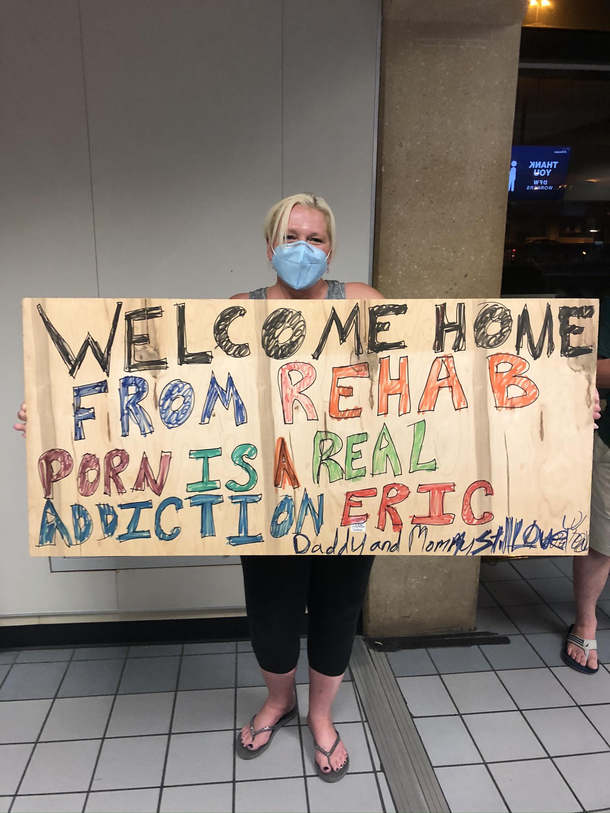 WELCOME HOME
FROM REHAB
PORN IS A REAL
ADDICTION ERIC
Daddy and Mommy still Love
THANK
YOU
DFW
WORKERS